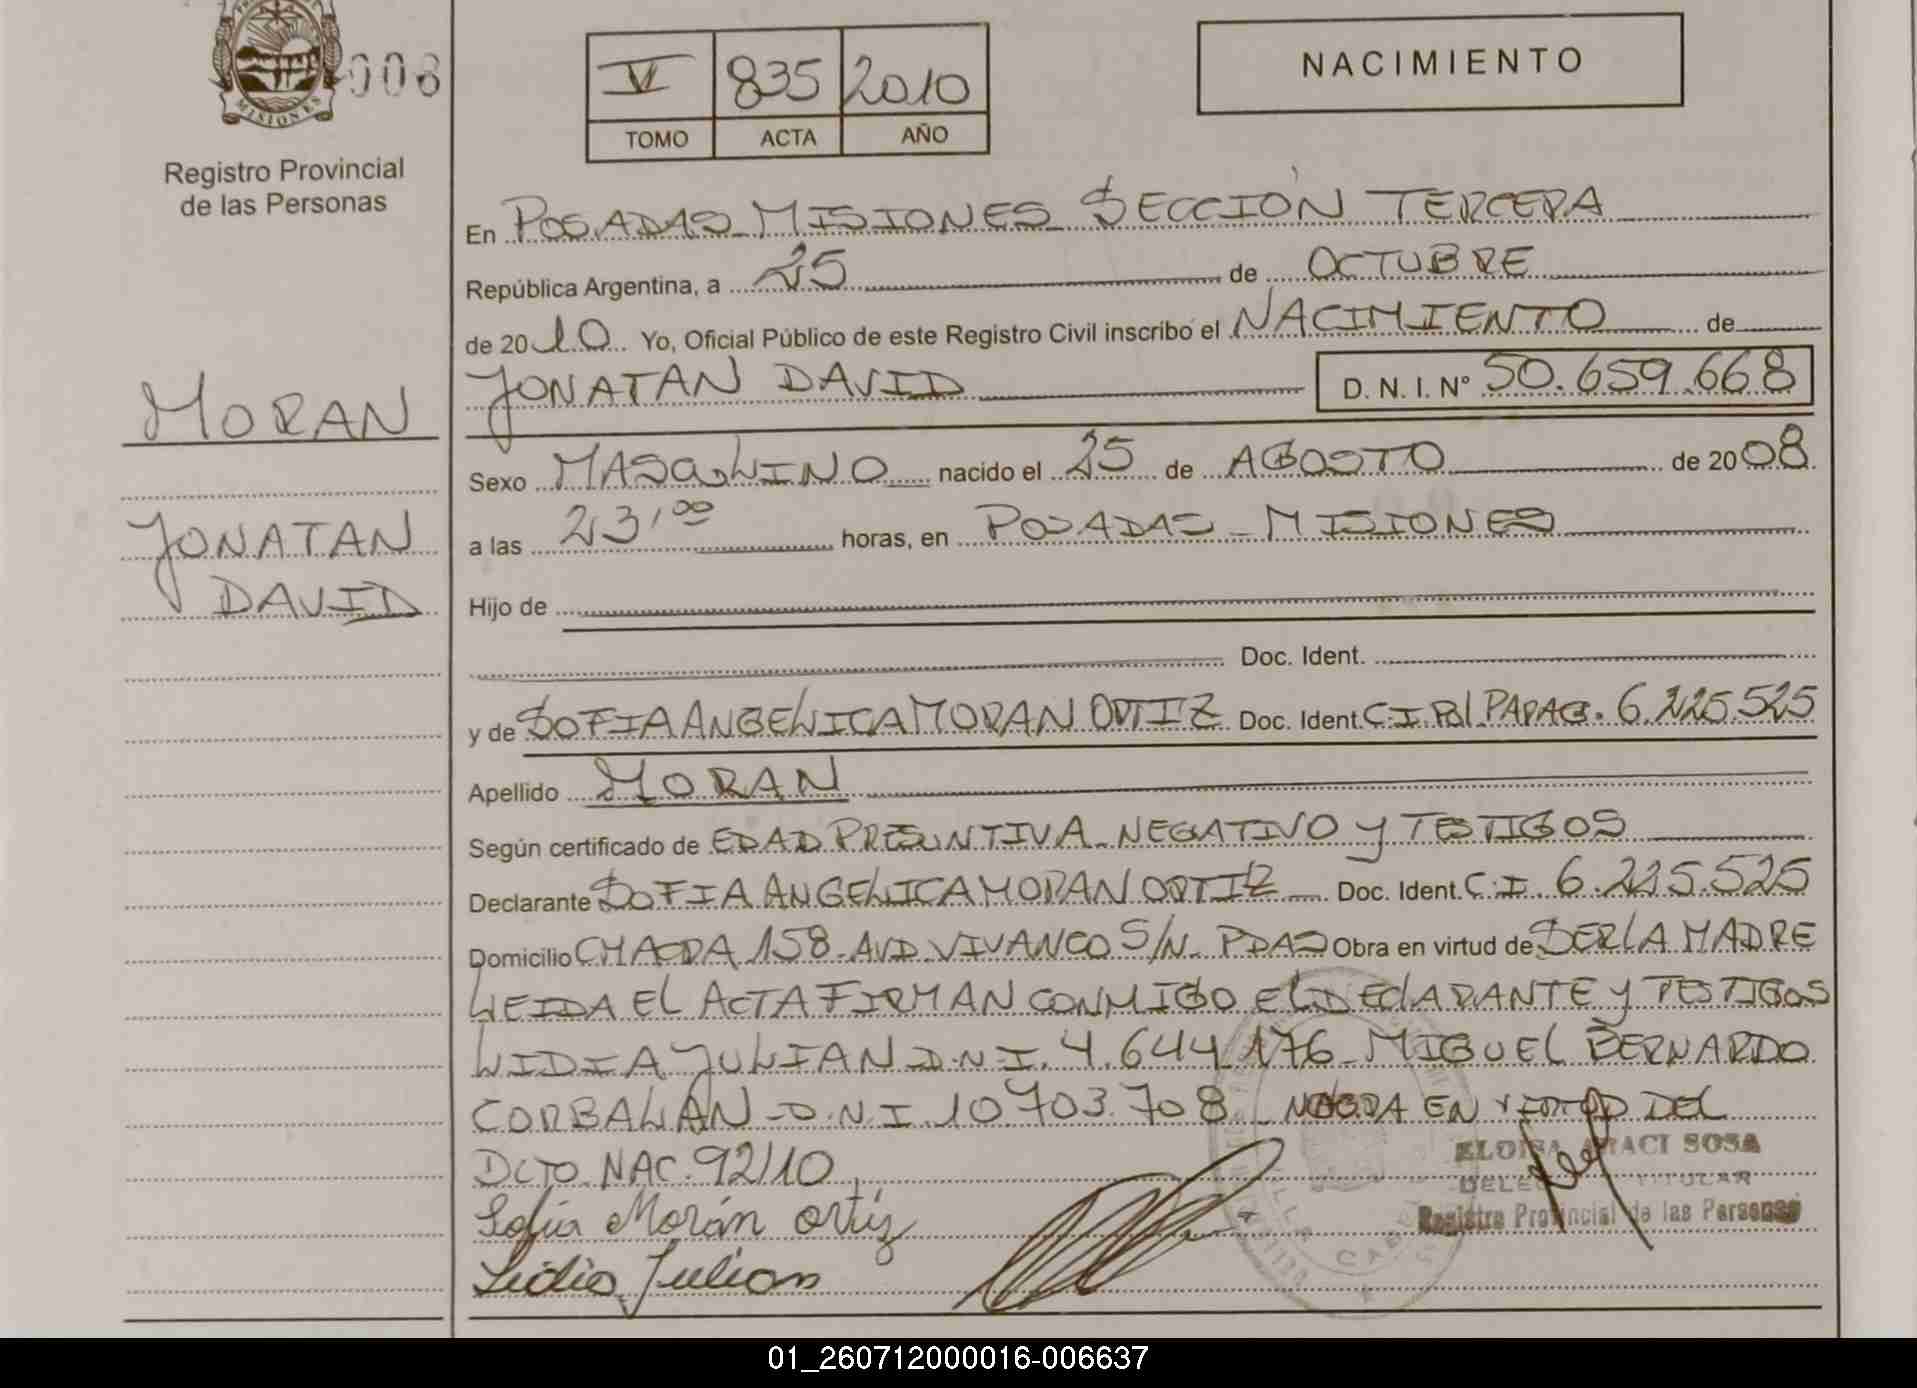 MISIONES
006
Registro Provincial
de las Personas
MORAN
JONATAN
DAVID
VI 835 2010
TOMO ACTA AÑO
NACIMIENTO
En POSADAS MISIONES SECCIÓN TERCERA
República Argentina, a 25 de OCTUBRE
de 2010 Yo, Oficial Público de este Registro Civil inscribo el NACIMIENTO de
JONATAN DAVID D. N. I. N° 50.659.668
Sexo MASCULINO nacido el 25 de AGOSTO de 2008
a las 23,00 horas, en POSADAS - MISIONES
Hijo de
Doc. Ident.
y de SOFIA ANGELICA MORAN ORTIZ Doc. Ident. C.I. Pol. PARAG. 6.225.525
Apellido MORAN
Según certificado de EDAD PRESUNTIVA - NEGATIVO Y TESTIGOS
Declarante SOFIA ANGELICA MORAN ORTIZ Doc. Ident. C.I. 6.225.525
Domicilio CHACRA 158 - AVD. VIVANCO S/N - PDAS Obra en virtud de SER LA MADRE
LEIDA EL ACTA FIRMAN CONMIGO EL DECLARANTE Y TESTIGOS
LIDIA JULIAN D.N.I. 4.644.176 - MIGUEL BERNARDO
CORBALAN - D.N.I. 10703.708 - OBRA EN VIRTUD DEL
DCTO. NAC. 92/10
Sofia Morán Ortíz
Lidia Julian
ELOISA ARACI SOSA
TITULAR
Registro Provincial de las Personas
01_260712000016-006637